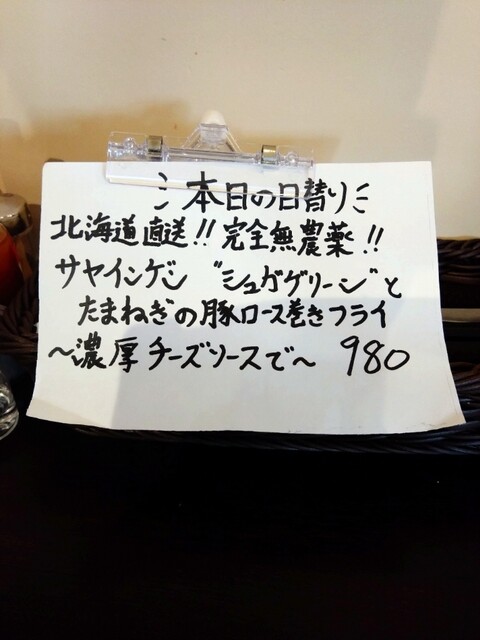 本日の日替り
北海道直送!! 完全無農薬!!
サヤインゲン "シュガグリーン"と
たまねぎの豚ロース巻きフライ
〜濃厚チーズソースで〜 980